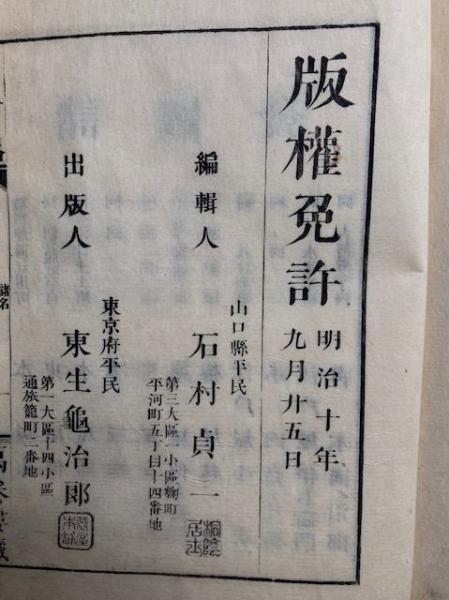 版權免許
明治十年
九月廿五日
編輯人
山口縣平民
石村貞一
第三大區一小區麴町
平河町五丁目十四番地
出版人
東京府平民
東生龜治郎
第一大區十四小區
通旅籠町二番地